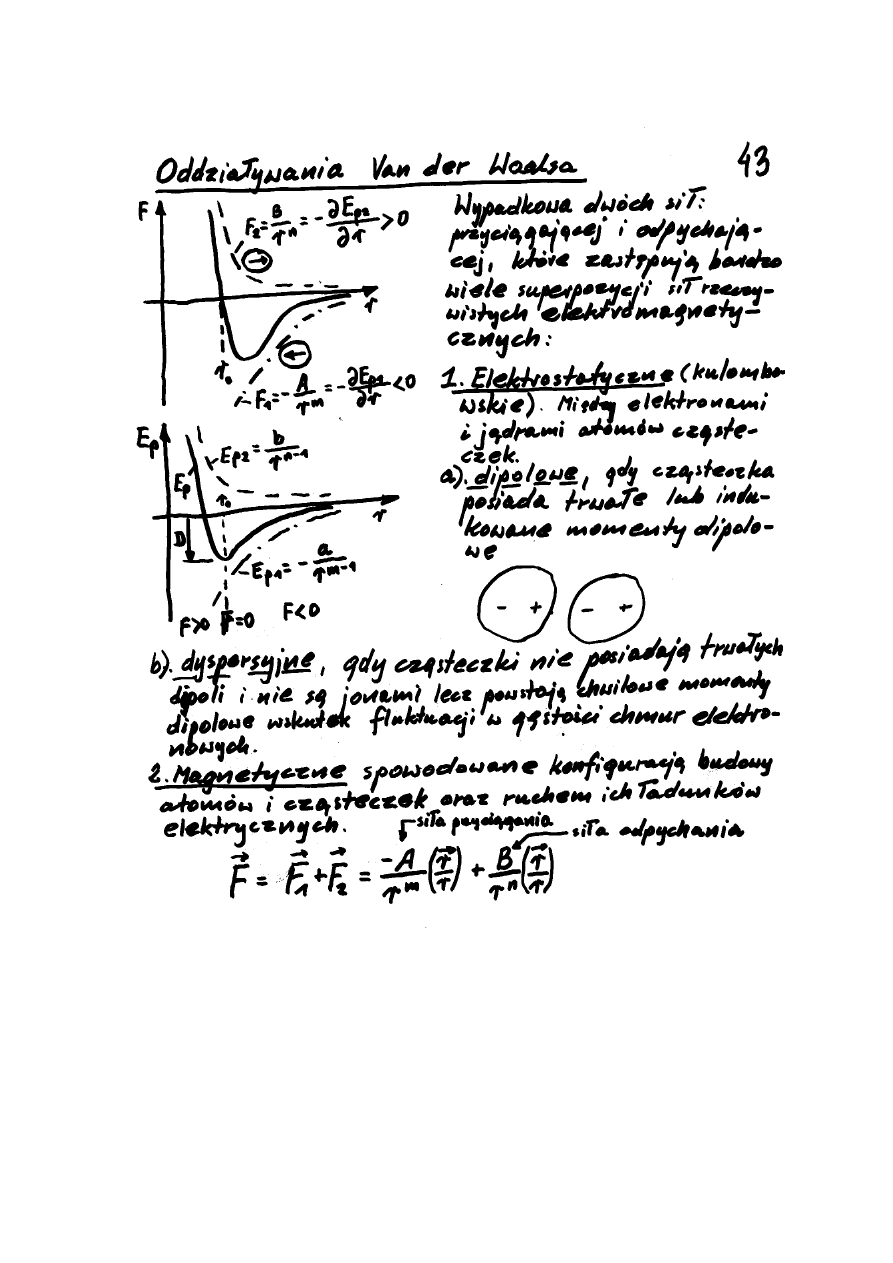 Oddziaływania Van der Waalsa
43
F
F₂ = B/rⁿ = -∂Ep₂/∂r > 0
→
r
r₀
←
F₁ = -A/rᵐ = -∂Ep₁/∂r < 0
Ep
Ep₂ = b/rⁿ⁻¹
Ep
r₀
r
D
Ep₁ = -a/rᵐ⁻¹
F>0 F=0 F<0
Wypadkowa dwóch sił:
przyciągającej i odpychają-
cej, które zastępują bardzo
wiele superpozycji sił rzeczy-
wistych elektromagnety-
cznych:
1. Elektrostatyczne (kulombo-
wskie). Między elektronami
i jądrami atomów cząste-
czek.
a). dipolowe, gdy cząsteczka
posiada trwałe lub indu-
kowane momenty dipolo-
we
- + - +
b). dyspersyjne, gdy cząsteczki nie posiadają trwałych
dipoli i nie są jonami lecz powstają chwilowe momenty
dipolowe wskutek fluktuacji w gęstości chmur elektro-
nowych.
2. Magnetyczne spowodowane konfiguracją budowy
atomów i cząsteczek oraz ruchem ich ładunków
elektrycznych.
siła przyciągania
siła odpychania
F⃗ = F⃗₁ + F⃗₂ = -A/rᵐ (r⃗/r) + B/rⁿ (r⃗/r)